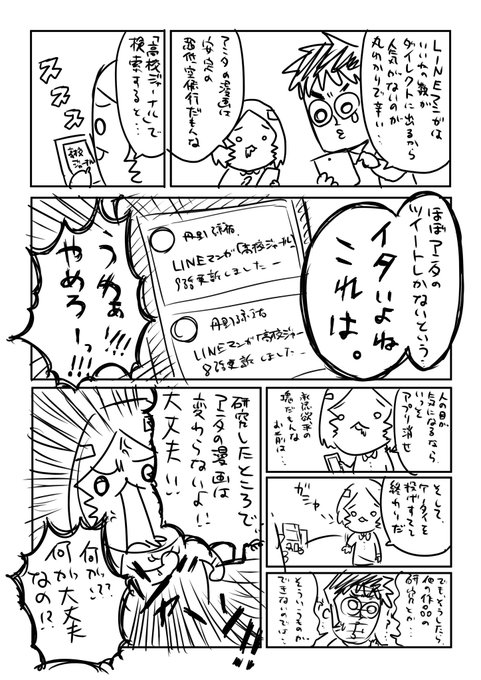 LINEマンガは
いいねの数が
ダイレクトに出るから
人気がないのが
丸わかりで辛い…
アニタの漫画は
安定の
低空飛行だもんな
「高校ジャーナル」で
検索すると…
高校
ジャーナル
ほぼアニタの
ツイートしかないという…
イタいよね
これは。
LINEマンガ「高校ジャーナル」
更新しましたー
LINEマンガ「高校ジャー
更新しましたー
うわぁ
やめろーっ!!!
人の目が
気になるなら
いっそ
アプリ消せ
承認欲求の
塊だもんな
お前は…
そして
ケータイを
投げすてて
終わりだ
ガシャ
でも、そうしたら
他の作品の
研究とか…
そういうのが
できないのでは…
研究したところで
アニタの漫画は
変わらないよ!!
大丈夫!!
何が!??
何が大丈夫
なの!?